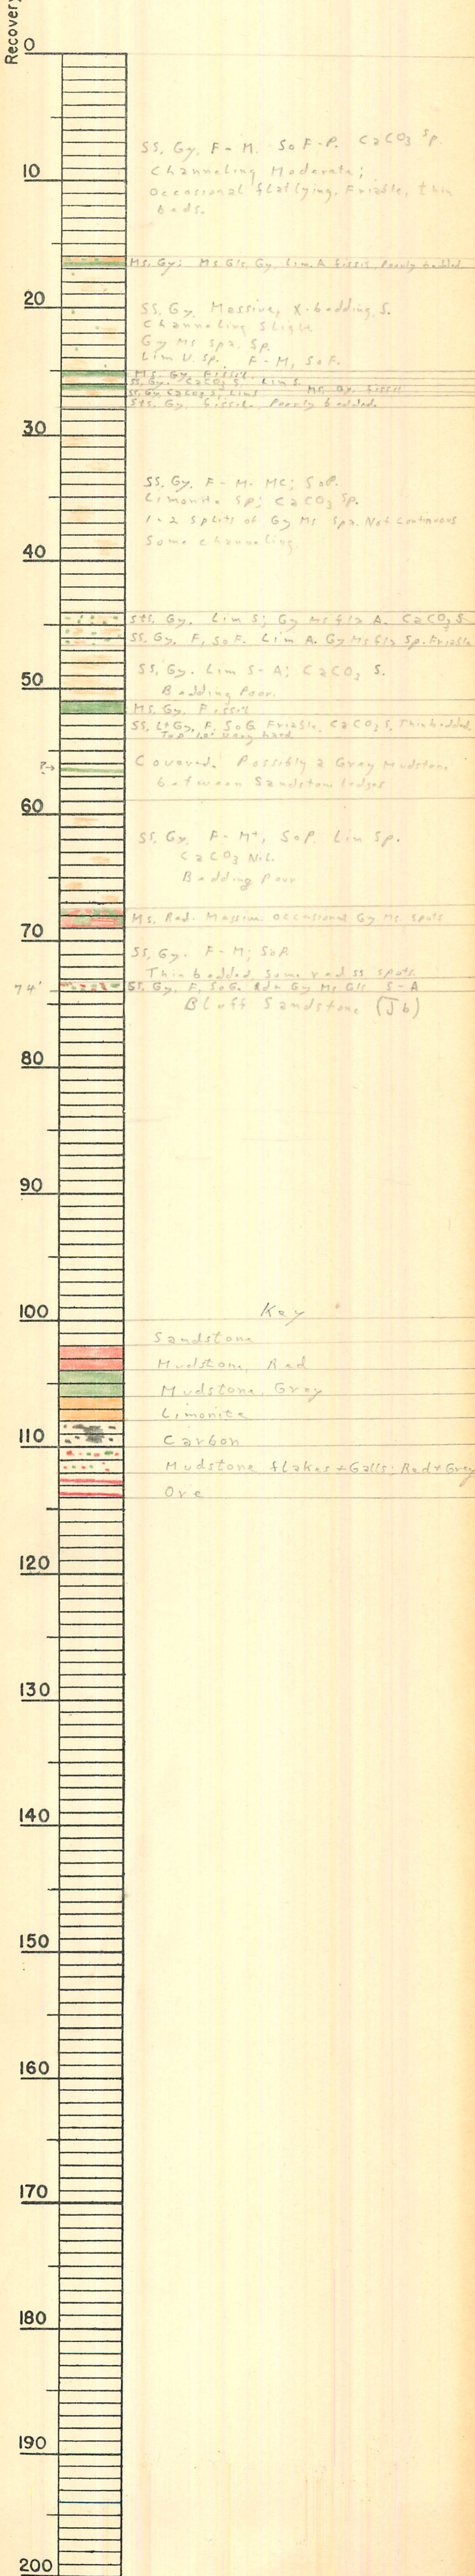 Recovery
0
SS, Gy, F-M. SoF-P. CaCO3 Sp.
Channeling Moderate;
10
Occasional flatlying, Friable, thin
beds.
Ms, Gy; Ms Gls Gy, Lim. A fissil, Poorly bedded
20
SS, Gy Massive, X-bedding, S.
Channeling Slight
Gy Ms Sps. Sp.
Lim V. Sp. F-M, SoF.
Ms. Gy, Fissil.
SS, Gy. CaCO3 S. Lim S.
Ms, Gy, fissil
SS, Gy CaCO3 S, Lim S
Sts, Gy, fissil, Poorly bedded.
30
SS, Gy, F-M-MC; SoP.
Limonite Sp; CaCO3 Sp.
1-2 Splits of Gy Ms Sps. Not Continuous
Some channeling.
40
Sts, Gy. Lim S; Gy Ms fls A. CaCO3 S
SS, Gy, F, SoF. Lim A. Gy Ms fls Sp. Friable
SS, Gy. Lim S-A; CaCO3 S.
50
Bedding Poor.
Ms. Gy, Fissil
SS, Lt Gy, F, SoG Friable, CaCO3 S, Thin bedded,
Top 1.0' very hard
?→
Covered. Possibly a Grey Mudstone
between Sandstone ledges
60
SS, Gy F-M+, SoP. Lim Sp.
CaCO3 Nil.
Bedding Poor
Ms. Red. Massive. Occasional Gy Ms. Spots
70
SS, Gy. F-M; SoP.
Thin bedded, Some red ss spots
74'
SS, Gy, F, SoG. Rd+ Gy Ms Gls S-A
Bluff Sandstone (Jb)
80
90
100
Key
Sandstone
Mudstone, Red
Mudstone, Grey
Limonite
110
Carbon
Mudstone flakes + Galls: Red + Grey
Ore
120
130
140
150
160
170
180
190
200